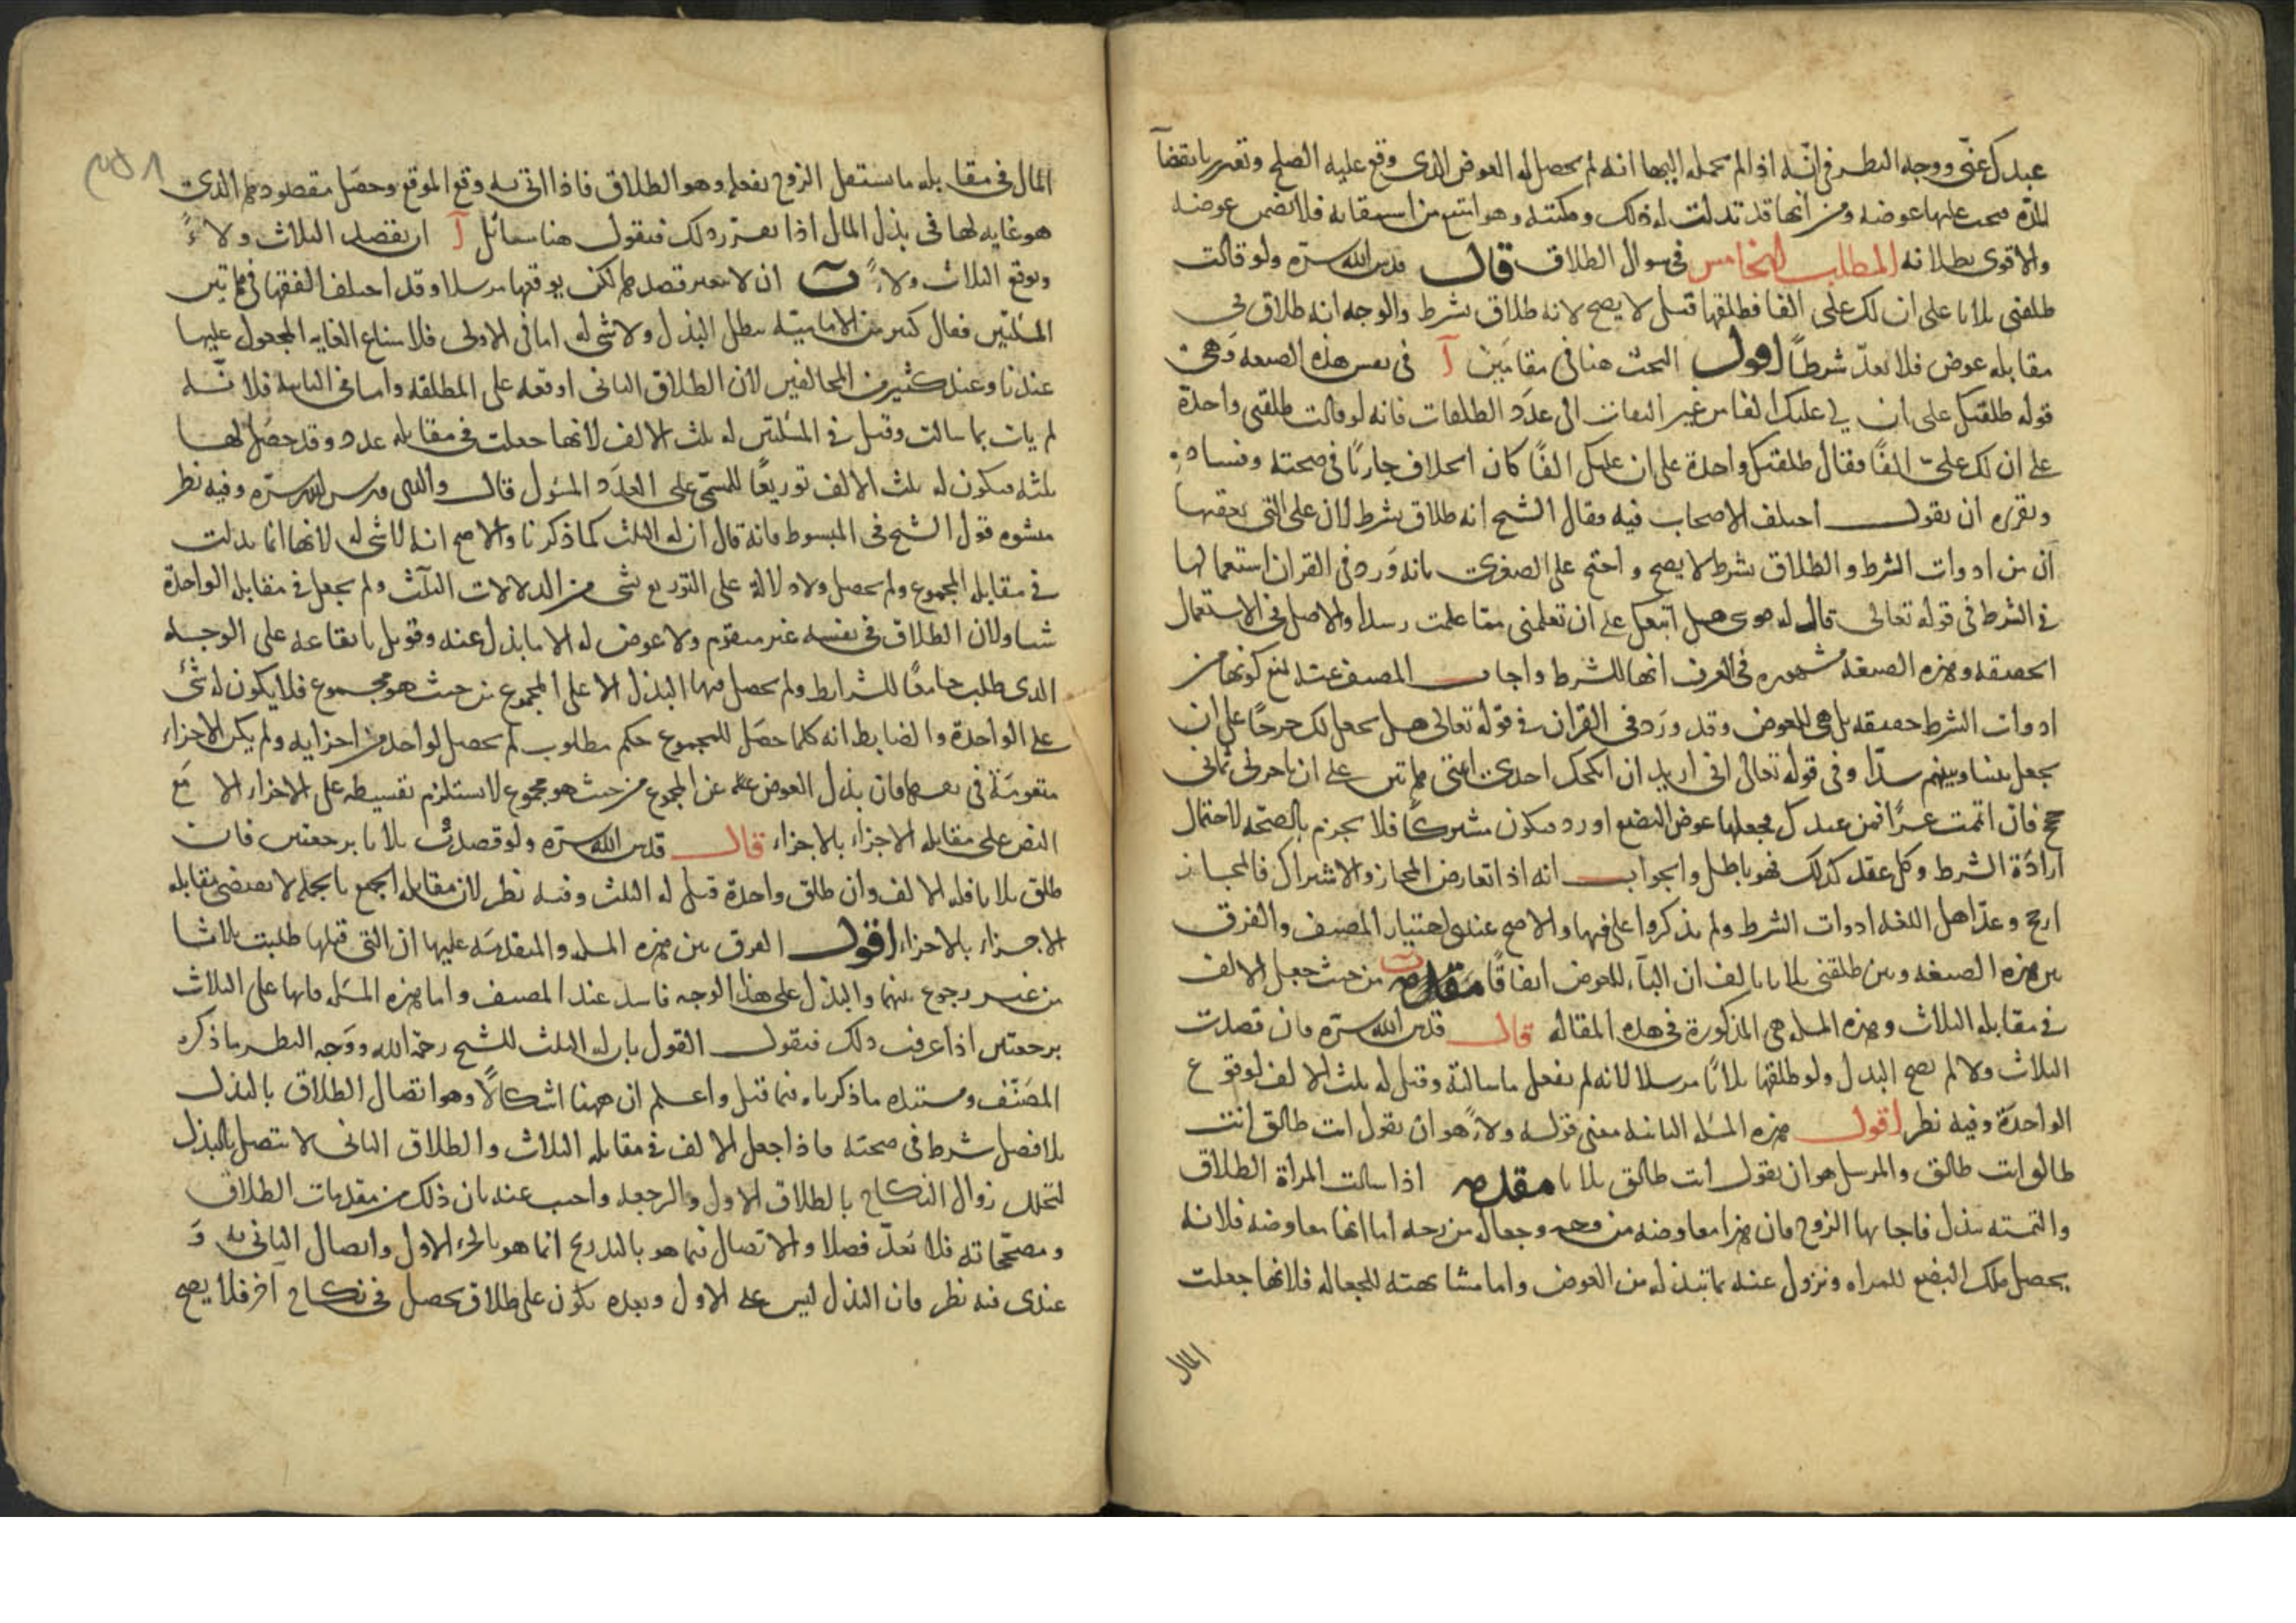 عندك عنّى ووجه النظر فى انّه اذا لم يحمله اليها انه لم يحصل له العوض الذى وقع عليه الصلح وتعذر بانقضآ
المدّة فيجب عليها عوضه ومن انها قد بذلت له ذلك ومكنته وهو امتنع من استيفائه فلا تضمن عوضه
والاقوى بطلانه المطلب الخامس فى سوال الطلاق قال قدس الله سرّه ولو قالت
طلقنى ثلاثا على ان لك على الفا فطلقها قيل لا يصح لانه طلاق بشرط والوجه انه طلاق فى
مقابله عوض فلا يعدّ شرطاً اقول البحث هنا فى مقامَين آ فى نفس هذه الصيغه وَهى
قوله طلقتك على ان لى عليك الفا من غير التفات الى عدَد الطلقات فانه لو قالت طلقنى واحدة
على ان لك علىّ الفًا فقال طلقتك واحدة على ان عليك الفًا كان الخلاف جاريًا فى صحته وفساده
وتقريره ان نقول اختلف الاصحاب فيه فقال الشيخ انه طلاق بشرط لان على التى تعقبها
ان من ادوات الشرط والطلاق بشرط لا يصح واحتج على الصغرى بانه وَرد فى القران استعمالها
فى الشرط فى قوله تعالى قال له موسى هل اتبعك على ان تعلمنى مما علمت رشدا والاصل فى الاستعمال
الحقيقه وهذه الصيغه مشهوره فى العرف انها للشرط واجاب المصنف عنه بمنع كونها من
ادوات الشرط حقيقه بل هى للعوض وقد ورَد فى القران فى قوله تعالى هل نجعل لك خرجًا على ان
تجعل بيننا وبينهم سدّا وفى قوله تعالى انى اريد ان انكحك احدى ابنتى هاتين على ان تاجرنى ثمانى
حجج فان اتممت عشرًا فمن عندك فجعلها عوض البضع اورد فيكون مشتركًا فلا يجزم بالصحّه لاحتمال
ارادَة الشرط وكل عقد كذلك فهو باطل والجواب انه اذا تعارض المجاز والاشتراك فالمجاز
ارجح وعدّ اهل اللغه ادوات الشرط ولم يذكروا على فيها والاصح عندى اختيار المصنف والفرق
بين هذه الصيغه وبين طلقنى ثلاثا بالف ان البآء للعوض اتفاقًا مَقَدمه ب من حيث جعل الالف
فى مقابله الثلاث وهذه المسله هى المذكورة فى هذه المقاله قال قدس الله سرّه فان قصدت
الثلاث ولاء لم يصح البذل ولو طلقها ثلاثًا مرسلا لانه لم يفعل ما سالته وقيل له ثلث الالف لوقوع
الواحدَة وفيه نظر اقول هذه المسَله الثانيه معنى قوله ولاءً هو ان يقول انت طالق انت
طالق انت طالق والمرسل هو ان يقول انت طالق ثلاثا مقدمه اذا سالت المراة الطلاق
والتمسته ببذل فاجابها الزوج فان هذا معاوضه من وجه وجعاله من وجه اما انها معاوضه فلانه
يحصل ملك البضع للمراه ويزول عنه بما تبذله من العوض واما مشابهته للجعاله فلانها جعلت
المال
المال فى مقابله ما يستقل الزوج بفعله وهو الطلاق فاذا اتى به وقع الموقع وحصَل مقصودهم الذى
هو غايه لها فى بذل المال اذا تقرر ذلك فنقول هنا مسائل آ ان يقصد الثلاث ولاءً
ويوقع الثلاث ولاءً ب ان لا يتغير قصدهما لكن يوقعها مرسلا وقد اختلف الفقها فى هاتين
المسئلتين فقال كثير من الاماميّه يبطل البذل ولا شى له اما فى الاولى فلامتناع الغايه المجعول عليها
عندنا وعند كثير من المخالفين لان الطلاق الثانى اوقعه على المطلقه واما فى الثانيه فلانّه
لم يات بما سالت وقيل فى المسئلتين له ثلث الالف لانها جعلت فى مقابله عدد وقد حصَل لها
ثلثه فيكون له ثلث الالف توزيعًا للمسمّى على العدَد المسئول قال والدى قدس الله سرّه وفيه نظر
منشوه قول الشيخ فى المبسوط فانه قال ان له الثلث كما ذكرنا والاصح انه لا شى له لانها انما بذلت
فى مقابله المجموع ولم يحصل ولا دلالة على التوزيع بشى من الدلالات الثلاث ولم يجعل فى مقابله الواحدة
شيا ولان الطلاق فى نفسه غير متقوم ولا عوض له الا ما بذل عنه وقوبل بايقاعه على الوجه
الذى طلب جامعًا للشرايط ولم يحصل فيها البذل الا على المجموع من حيث هو مجموع فلا يكون له شئ
على الواحدة والضابط انه كلما حصَل للمجموع حكم مطلوب لم يحصل لواحد من اجزايه ولم يكن الاجزاء
متقومَة فى نفسها فان بذل العوض عن المجموع من حيث هو مجموع لا يستلزم تقسيطه على الاجزاء الا مَع
النص على مقابله الاجزاء بالاجزاء قال قدس الله سرّه ولو قصدتْ ثلاثا برجعتين فان
طلق ثلاثا فله الالف وان طلق واحدة قيل له الثلث وفيه نظر لان مقابله الجمع بالجمله لا يقتضى مقابله
الاجزاء بالاجزاء اقول الفرق بين هذه المسله والمتقدمَه عليها ان التى قبلها طلبت ثلاثا
من غير رجوع بينهما والبذل على هذا الوجه فاسد عند المصنف واما هذه المسَله فانها على الثلاث
برجعتين اذا عرفت ذلك فنقول القول بان له الثلث للشيخ رحمه الله ووَجه النظر ما ذكره
المصَنّف ومستنده ما ذكرناه فيما قبل واعلم ان ههنا اشكالًا وهو اتصال الطلاق بالبذل
بلا فصل شرط فى صحته فاذا جعل الالف فى مقابله الثلاث والطلاق الثانى لا يتصل بالبذل
لتخلل زوال النكاح بالطلاق الاول والرجعه واجيب عنه بان ذلك من مقدمات الطلاق
ومصحّحاته فلا يعَدّ فصلا والاتصال فيما هو بالتدريج انما هو بالجزء الاول واتصال الثانى به وَ
عندى فيه نظر فان البذل ليس على الاول وبعده يكون على طلاق يحصل فى نكاح آخر فلا يصح